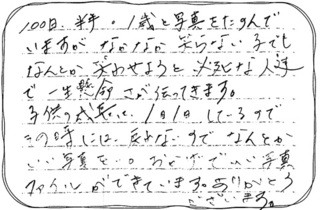 100日、半年、1歳と写真をたのんで
いますが なかなか 笑らない 子でも
なんとか 笑わせようと 必死な人達
で一生懸命さが伝ってきます。
子供の成長は、1日1日しているので
その時には、戻れないのでなんとか
いい写真を。おかげでいい写真
ファイルができています。ありがとう
ございます。